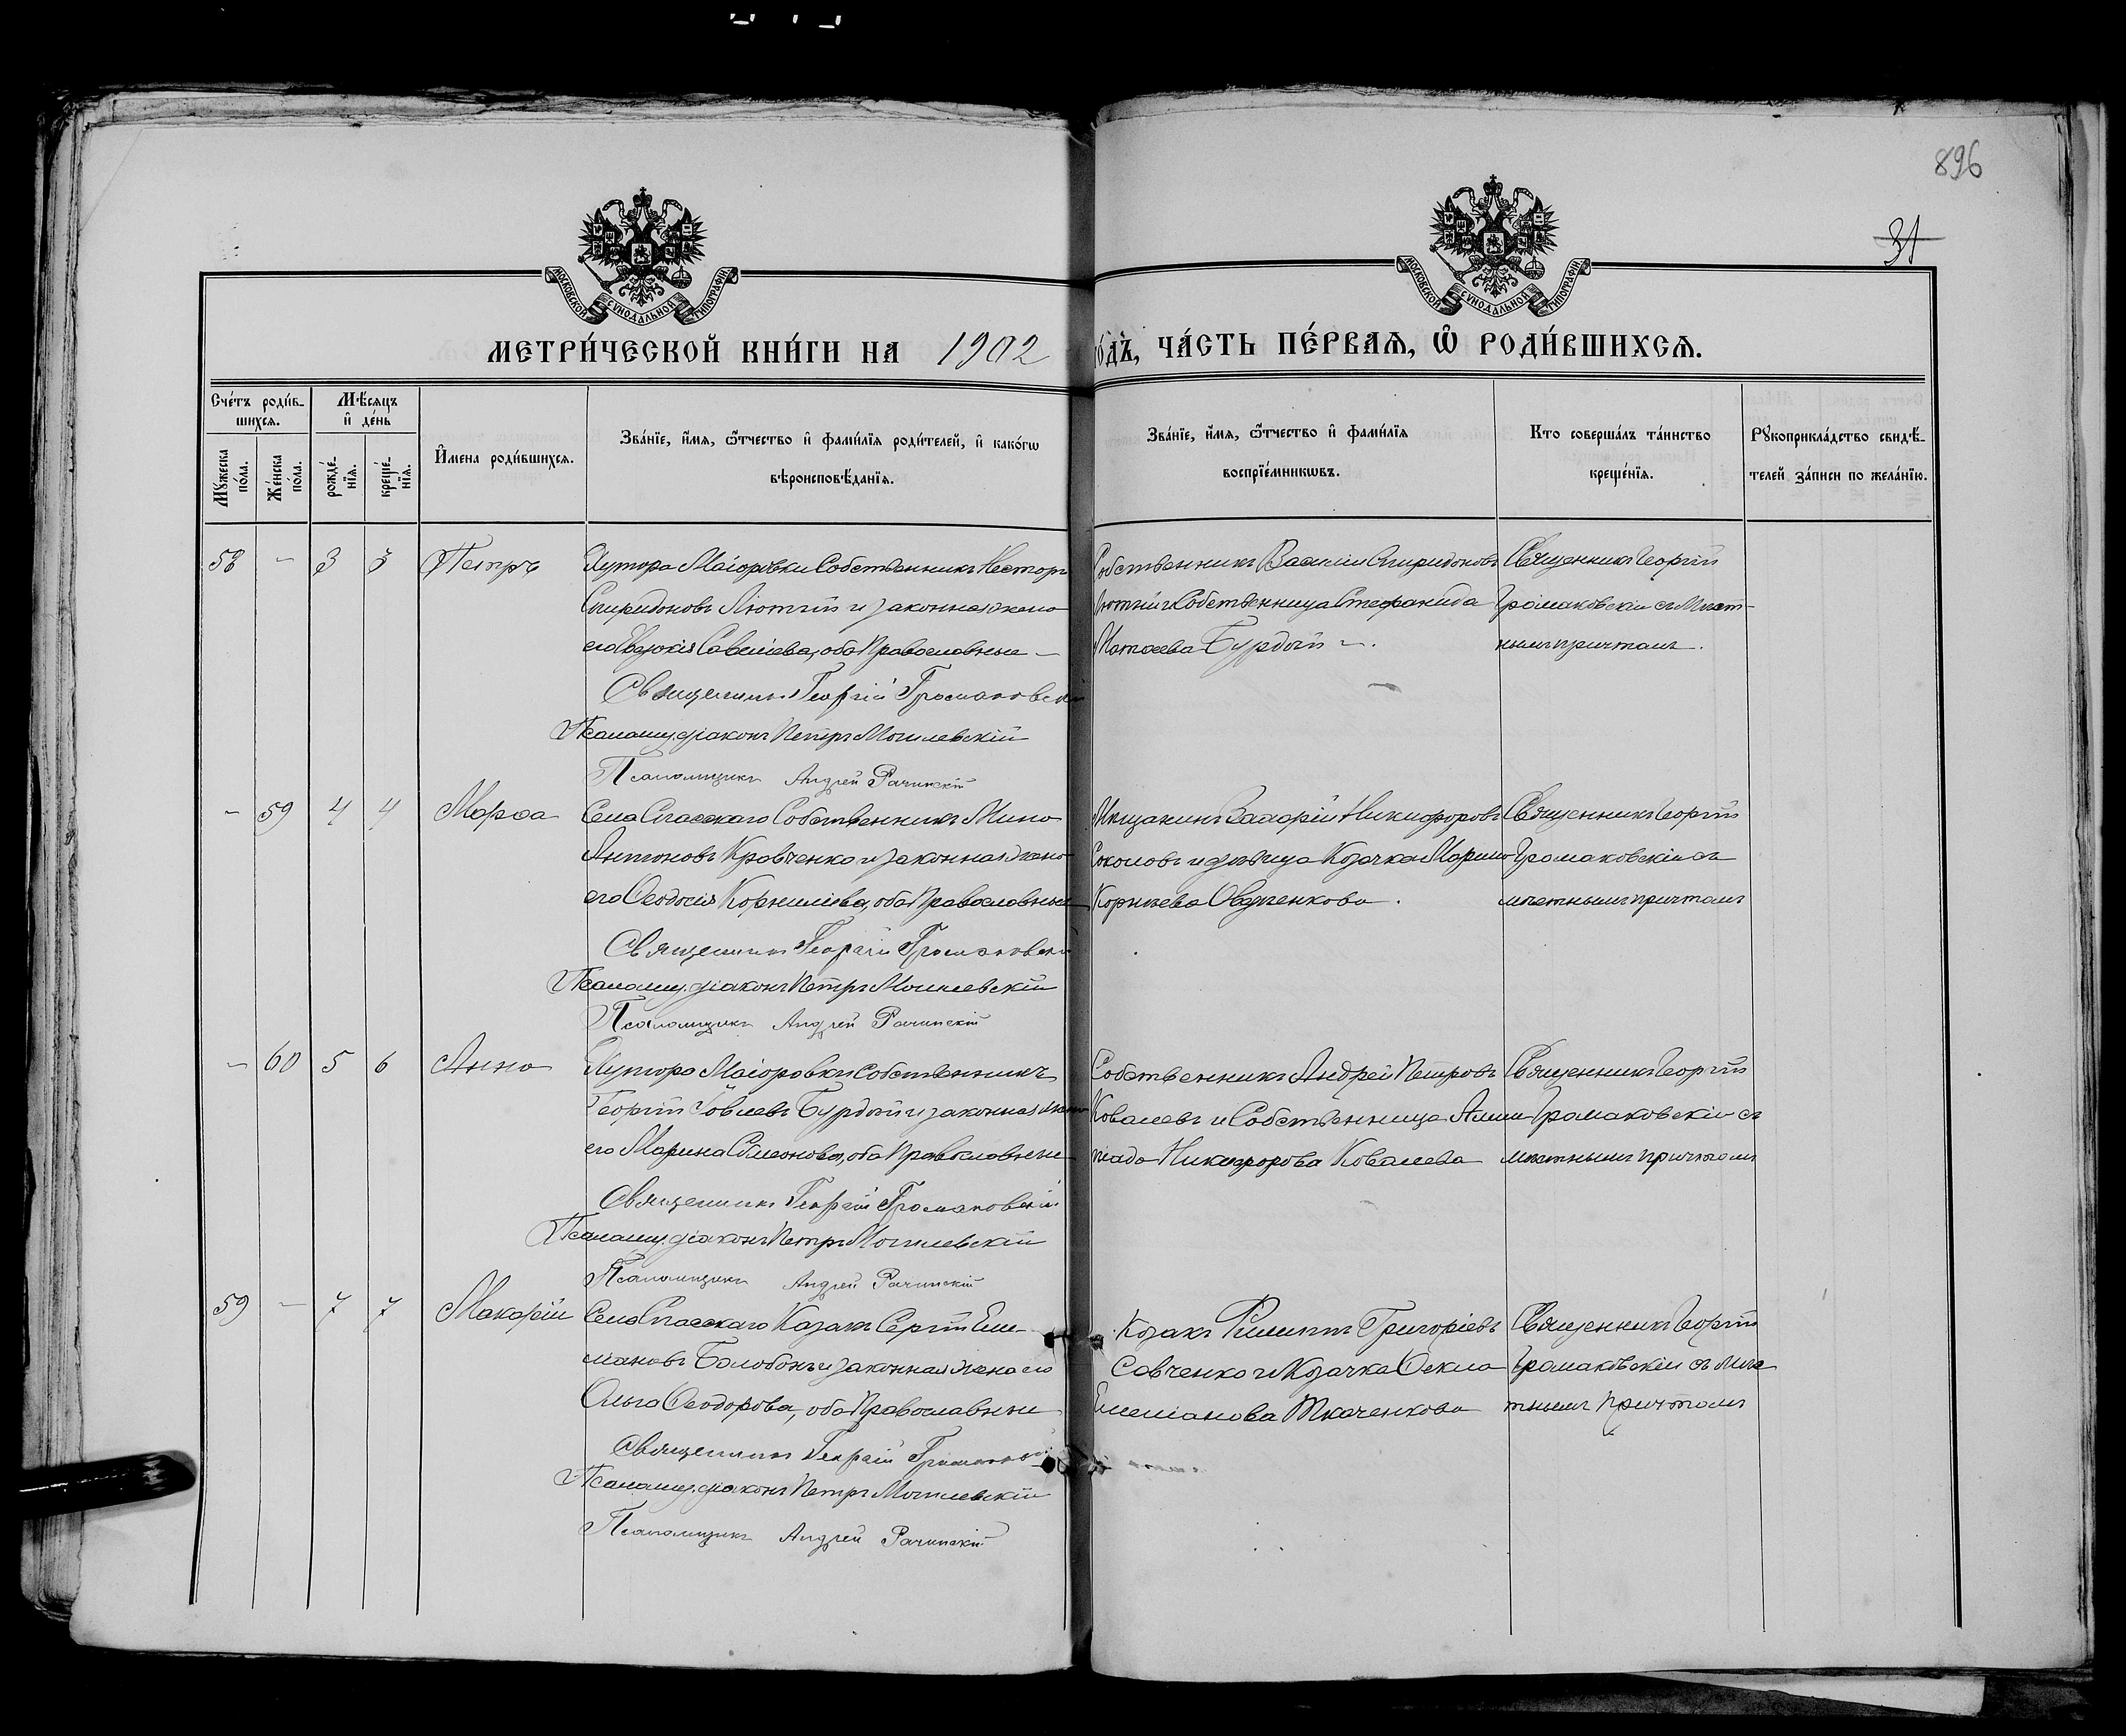 896
31
МОСКОВСКОЙ СУНОДАЛЬНОЙ ТИПОГРАФІИ
МОСКОВСКОЙ СУНОДАЛЬНОЙ ТИПОГРАФІИ
МЕТРИ́ЧЕСКОЙ КНИ́ГИ НА 1902
го́дъ, ЧА́СТЬ ПЕ́РВАЯ, Ѡ҆ РОДИ́ВШИХСЯ.
Сче́тъ роди́в-
шихся.
Мѣ́сяцъ
и҆ де́нь
Мꙋ́жеска
по́ла.
Же́нска
по́ла.
рожде́-
нїя.
креще́-
нїя.
И҆́мена роди́вшихся.
Зва́нїе, и҆́мя, ѻ҆́тчество и҆ фами́лїя роди́телей, и҆ како́гѡ
вѣроисповѣ́данїя.
Зва́нїе, и҆́мя, ѻ҆́тчество и҆ фами́лїя
воспрїе́мникѡвъ.
Кто соверша́лъ та́инство
креще́нїя.
Рꙋкоприкла́дство свидѣ́-
телей за́писи по жела́нїю.
58 - 3 3 Петръ
Хутора Маіоровки Собственникъ Несторъ
Спиридоновъ Лютый и законная жена
его Евдокія Савеліева, оба Православные
Священникъ Георгій Громаковскій
Псаломщ. діаконъ Петръ Могилевскій
Псаломщикъ Андрей Рачинскій
Собственникъ Василій Спиридоновъ
Лютый и Собственница Стефанида
Матѳеева Бурдый
Священникъ Георгій
Громаковскій съ Мѣст-
нымъ причтомъ.
- 59 4 4 Марѳа
Села Спасскаго Собственникъ Мина
Антоновъ Кравченко и законная жена
его Ѳеодосія Корниліева, оба Православные
Священникъ Георгій Громаковскій
Псаломщ. діаконъ Петръ Могилевскій
Псаломщикъ Андрей Рачинскій
Мѣщанинъ Захарій Никифоровъ
Соколовъ и дѣвица Козачка Марина
Корнѣева
Священникъ Георгій
Громаковскій съ
мѣстнымъ причтомъ
- 60 5 6 Анна
Хутора Маіоровки Собственникъ
Георгій Іовлевъ Бурдый и законная жена
его Марина Симеонова, оба Православные
Священникъ Георгій Громаковскій
Псаломщ. діаконъ Петръ Могилевскій
Псаломщикъ Андрей Рачинскій
Собственникъ Андрей Петровъ
Ковалевъ и Собственница
Никифорова Ковалева
Священникъ Георгій
Громаковскій съ
мѣстнымъ причтомъ
59 - 7 7 Макарій
Села Спасскаго Казакъ Сергій Еме-
ліановъ Балобонъ и законная жена его
Ольга Ѳеодорова, оба Православные
Священникъ Георгій Громаковскій
Псаломщ. діаконъ Петръ Могилевскій
Псаломщикъ Андрей Рачинскій
Козакъ Филиппъ Григоріевъ
Савченко и Козачка Ѳекла
Емеліанова Ткаченкова
Священникъ Георгій
Громаковскій съ мѣс
тнымъ причтомъ